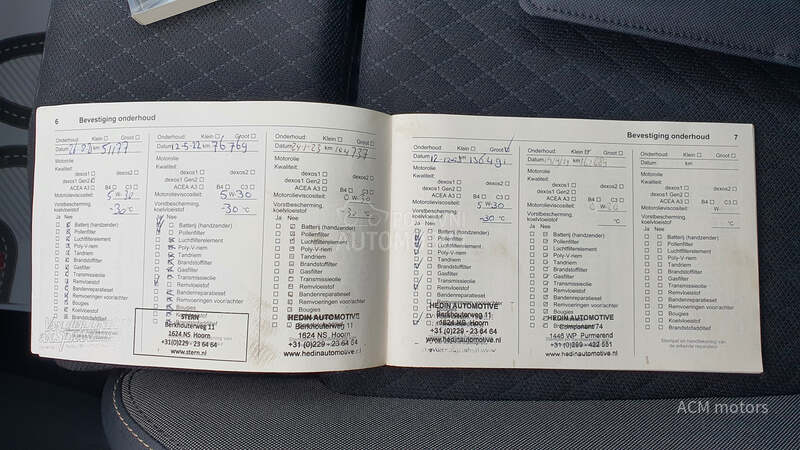 6 Bevestiging onderhoud
Onderhoud: Klein Groot
Datum km 51177
Motorolie
Kwaliteit:
dexos1 dexos2
dexos1 Gen2
ACEA A3 B4 C3
Motorolieviscositeit: 5 W 30
Vorstbescherming
koelvloeistof -30 °C
Ja Nee
Batterij (handzender)
Pollenfilter
Luchtfilterelement
Poly-V-riem
Tandriem
Brandstoffilter
Gasfilter
Transmissieolie
Remvloeistof
Bandenreparatieset
Remvoeringen voor/achter
Bougies
Koelvloeistof
Brandstofadditief
Onderhoud: Klein Groot
Datum 12-5-22 km 76769
Motorolie
Kwaliteit:
dexos1 dexos2
dexos1 Gen2
ACEA A3 B4 C3
Motorolieviscositeit: 5 W 30
Vorstbescherming
koelvloeistof -30 °C
Ja Nee
Batterij (handzender)
Pollenfilter
Luchtfilterelement
Poly-V-riem
Tandriem
Brandstoffilter
Gasfilter
Transmissieolie
Remvloeistof
Bandenreparatieset
Remvoeringen voor/achter
Bougies
STERN
Berkhouterweg 11
1624 NS Hoorn
+31(0)229 - 23 64 64
www.stern.nl
Onderhoud: Klein Groot
Datum 24-1-23 km 104737
Motorolie
Kwaliteit:
dexos1 dexos2
dexos1 Gen2
ACEA A3 B4 C3
Motorolieviscositeit:
Vorstbescherming
koelvloeistof
Ja Nee
Batterij (handzender)
Pollenfilter
Luchtfilterelement
Poly-V-riem
Tandriem
Brandstoffilter
Gasfilter
Transmissieolie
Remvloeistof
Bandenreparatieset
Remvoeringen voor/achter
Bougies
HEDIN AUTOMOTIVE
Berkhouterweg 11
1624 NS Hoorn
+31 (0)229 - 23 64 64
www.hedinautomotive.nl
Bevestiging onderhoud 7
Onderhoud: Klein Groot
Datum km 136491
Motorolie
Kwaliteit:
dexos1 dexos2
dexos1 Gen2
ACEA A3 B4 C3
Motorolieviscositeit: 5 W 30
Vorstbescherming
koelvloeistof -30 °C
Ja Nee
Batterij (handzender)
Pollenfilter
Luchtfilterelement
Poly-V-riem
Tandriem
Brandstoffilter
Gasfilter
Transmissieolie
Remvloeistof
Bandenreparatieset
Remvoeringen voor/achter
HEDIN AUTOMOTIVE
Berkhouterweg 11
1624 NS Hoorn
+31 (0)229 - 23 64 64
www.hedinautomotive.nl
Onderhoud: Klein Groot
Datum km
Motorolie
Kwaliteit:
dexos1 dexos2
dexos1 Gen2
ACEA A3 B4 C3
Motorolieviscositeit:
Vorstbescherming
koelvloeistof °C
Ja Nee
Batterij (handzender)
Pollenfilter
Luchtfilterelement
Poly-V-riem
Tandriem
Brandstoffilter
Gasfilter
Transmissieolie
Remvloeistof
Bandenreparatieset
Remvoeringen voor/achter
Bougies
Koelvloeistof
HEDIN AUTOMOTIVE
Component 74
1446 WP Purmerend
www.hedinautomotive.nl
Onderhoud: Klein Groot
Datum km
Motorolie
Kwaliteit:
dexos1 dexos2
dexos1 Gen2
ACEA A3 B4 C3
Motorolieviscositeit: W
Vorstbescherming
koelvloeistof °C
Ja Nee
Batterij (handzender)
Pollenfilter
Luchtfilterelement
Poly-V-riem
Tandriem
Brandstoffilter
Gasfilter
Transmissieolie
Remvloeistof
Bandenreparatieset
Remvoeringen voor/achter
Bougies
Koelvloeistof
Brandstofadditief
Stempel en handtekening van
de erkende reparateur
ACM motors